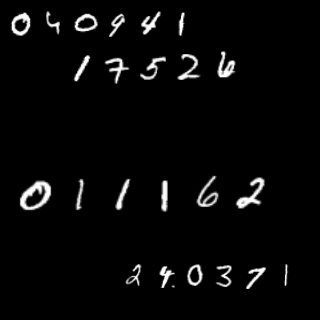 040941
17526
011162
240371